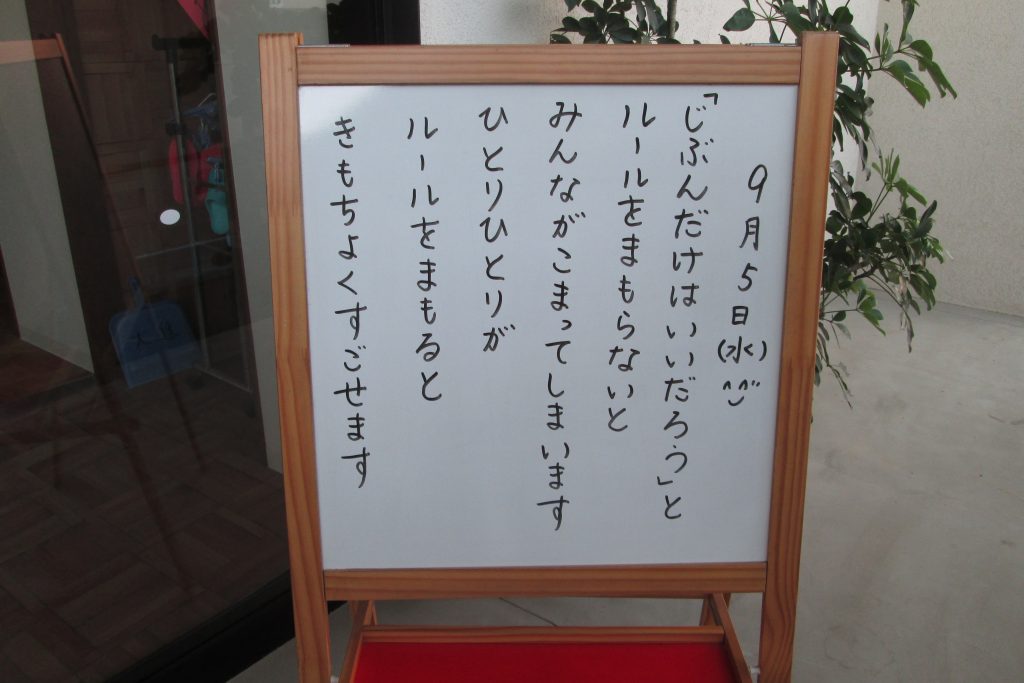 9月5日(水)^^
「じぶんだけはいいだろう」と
ルールをまもらないと
みんながこまってしまいます
ひとりひとりが
ルールをまもると
きもちよくすごせます